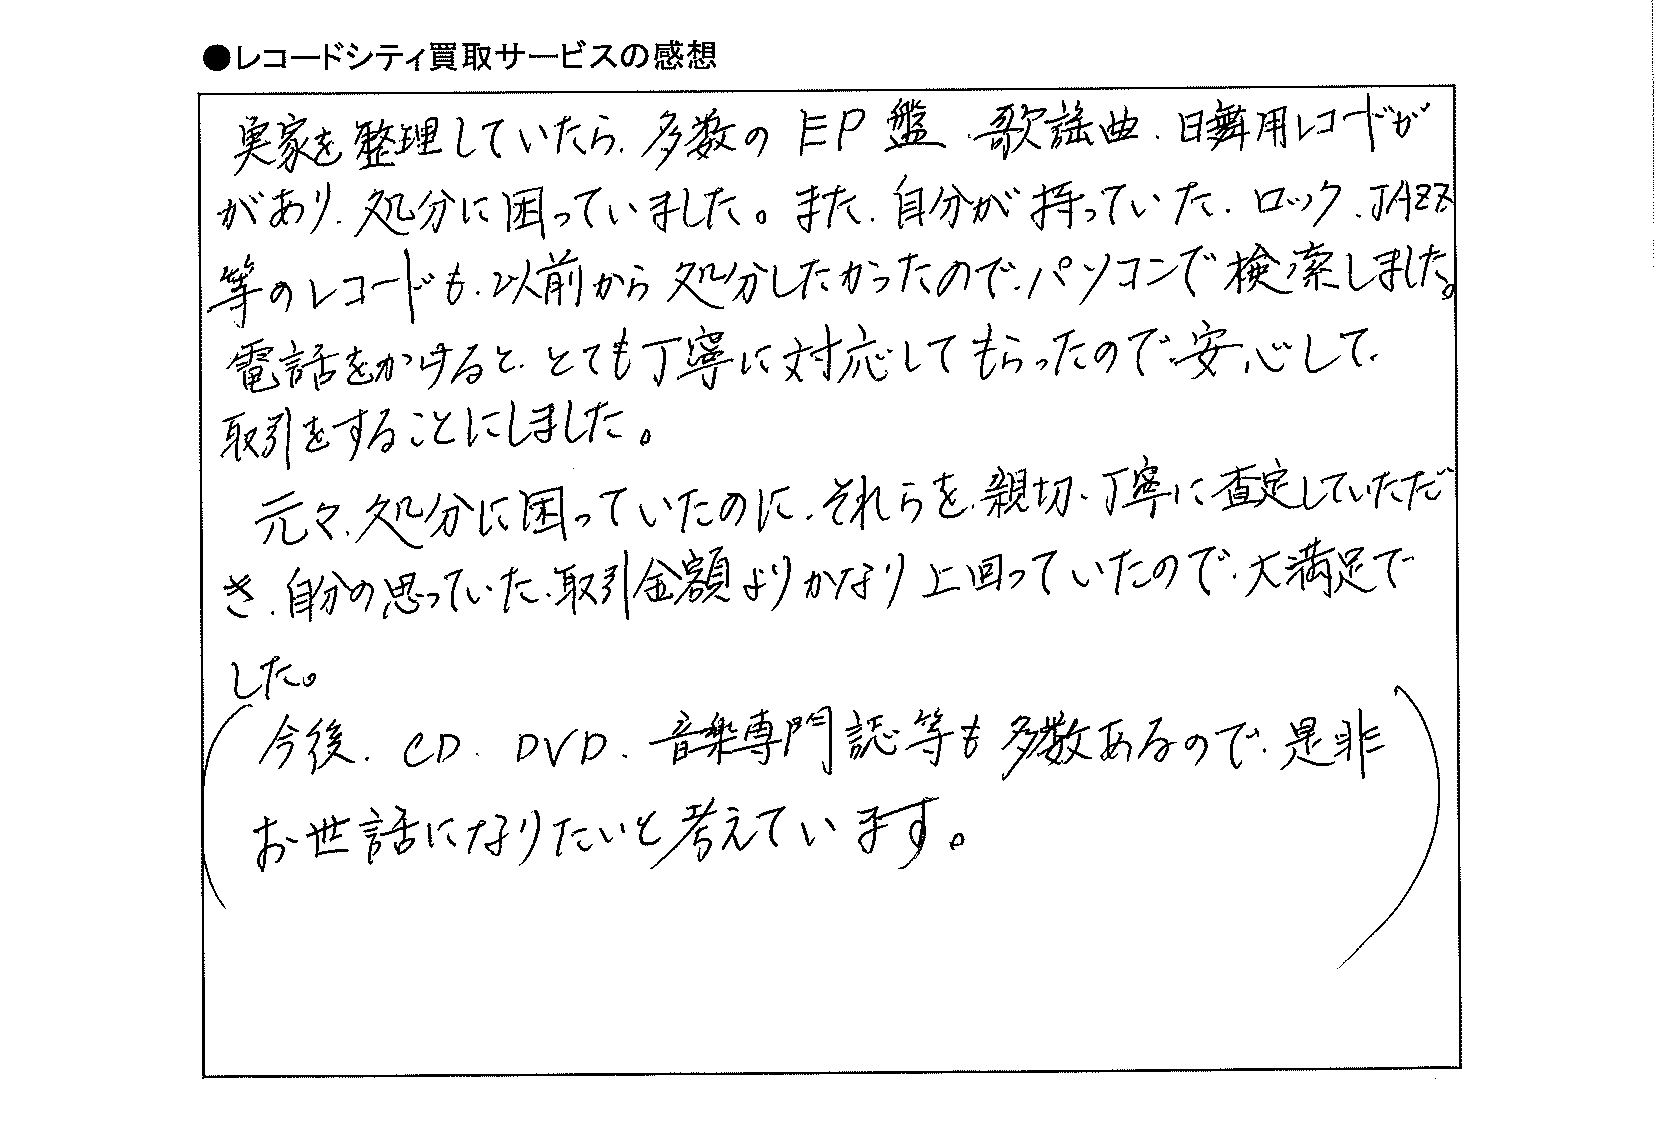 ●レコードシティ買取サービスの感想
実家を整理していたら、多数のEP盤、歌謡曲、日舞用レコードが
があり、処分に困っていました。また、自分が持っていた、ロック、JAZZ
等のレコードも、以前から処分したかったので、パソコンで検索しました。
電話をかけると、とても丁寧に対応してもらったので、安心して、
取引をすることにしました。
元々、処分に困っていたのに、それらを、親切、丁寧に査定していただ
き、自分の思っていた、取引金額よりかなり上回っていたので、大満足で
した。
(今後、CD、DVD、音楽専門誌等も多数あるので、是非
お世話になりたいと考えています。)